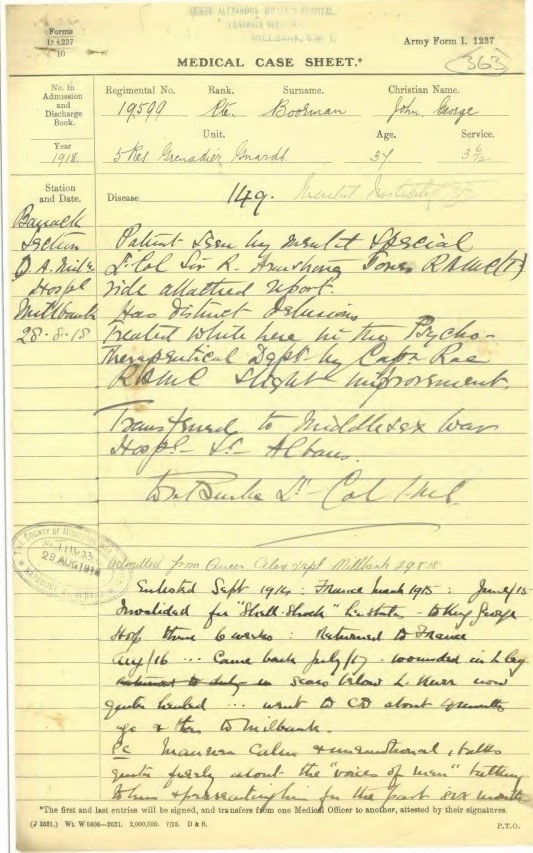 QUEEN ALEXANDRA MILITARY HOSPITAL
(BARRACK SECTION)
MILLBANK, S.W.1.
Forms
I 1237
10
Army Form I. 1237
363
MEDICAL CASE SHEET.*
No. in Admission and Discharge Book.
Regimental No. Rank. Surname. Christian Name.
19599 Pte Boorman John George
Year
1918.
Unit. Age. Service.
5 Res Grenadier Guards 37 3 6/12
Station and Date.
Disease 149. Mental Instability
Barrack
Section
Q A. Mil.
Hospl
Millbank
28.8.18
Patient seen by Mental Special
Lt Col Sir R. Armstrong Jones RAMC(T)
vide attached report.
Has distinct delusions
treated whilst here in the Psycho-
therapeutical Dept by Capt Rae
RAMC slight improvement.
Transferred to Middlesex War
Hospl - St Albans.
Burke Lt Col
THE COUNTY OF MIDDLESEX WAR
29 AUG 1918
NAPSBURY, ST ALBANS
Admitted from Queen Alex Hospl Millbank 29.8.18
Enlisted Sept 1914 : France March 1915 : June/15
Invalided for "Shell-Shock" - to King George
Hosp there 6 weeks : Returned to France
Aug/16 ... Came back July/17 - wounded in L leg
returned to duty - scars below L. knee now
quite healed ... went to CD about 4 months
ago & then to Milbank.
Pc Manner Calm & unemotional, talks
quite freely about the "voices of men" talking
to him & persecuting him for the past six months
*The first and last entries will be signed, and transfers from one Medical Officer to another, attested by their signatures.
(J 3521.) Wt. W 5606—3631. 2,000,000. 7/15. D & S. P.T.O.